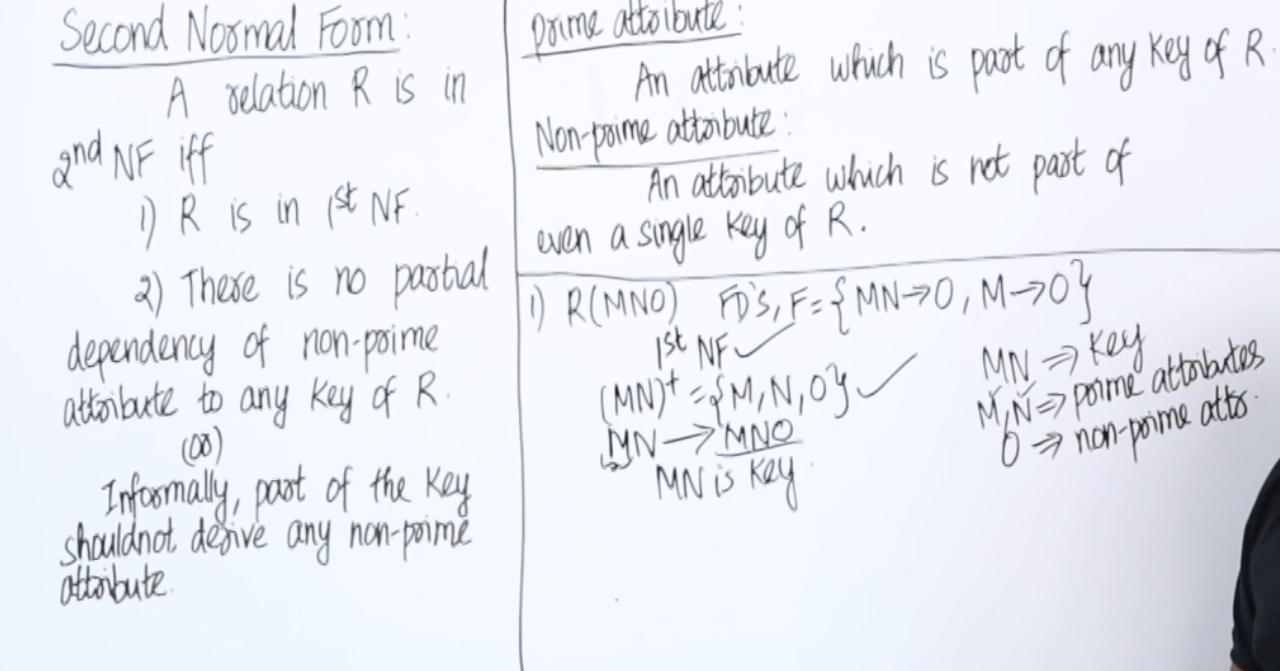 Second Normal Form:
A relation R is in
2nd NF iff
1) R is in 1st NF.
2) There is no partial
dependency of non-prime
attribute to any key of R.
(or)
Informally, part of the key
shouldnot derive any non-prime
attribute.
prime attribute:
An attribute which is part of any key of R.
Non-prime attribute:
An attribute which is not part of
even a single key of R.
1) R(MNO) FD's, F={MN→O, M→O}
1st NF ✓
(MN)⁺ = {M,N,O} ✓
MN → MNO
MN is key
MN ⇒ key
M,N ⇒ prime attributes
O ⇒ non-prime attr.